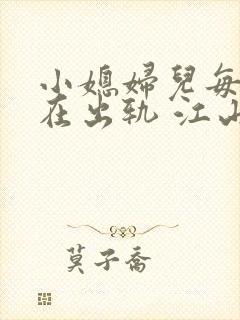 小媳婦兒每
在出軌 江山
莫子喬